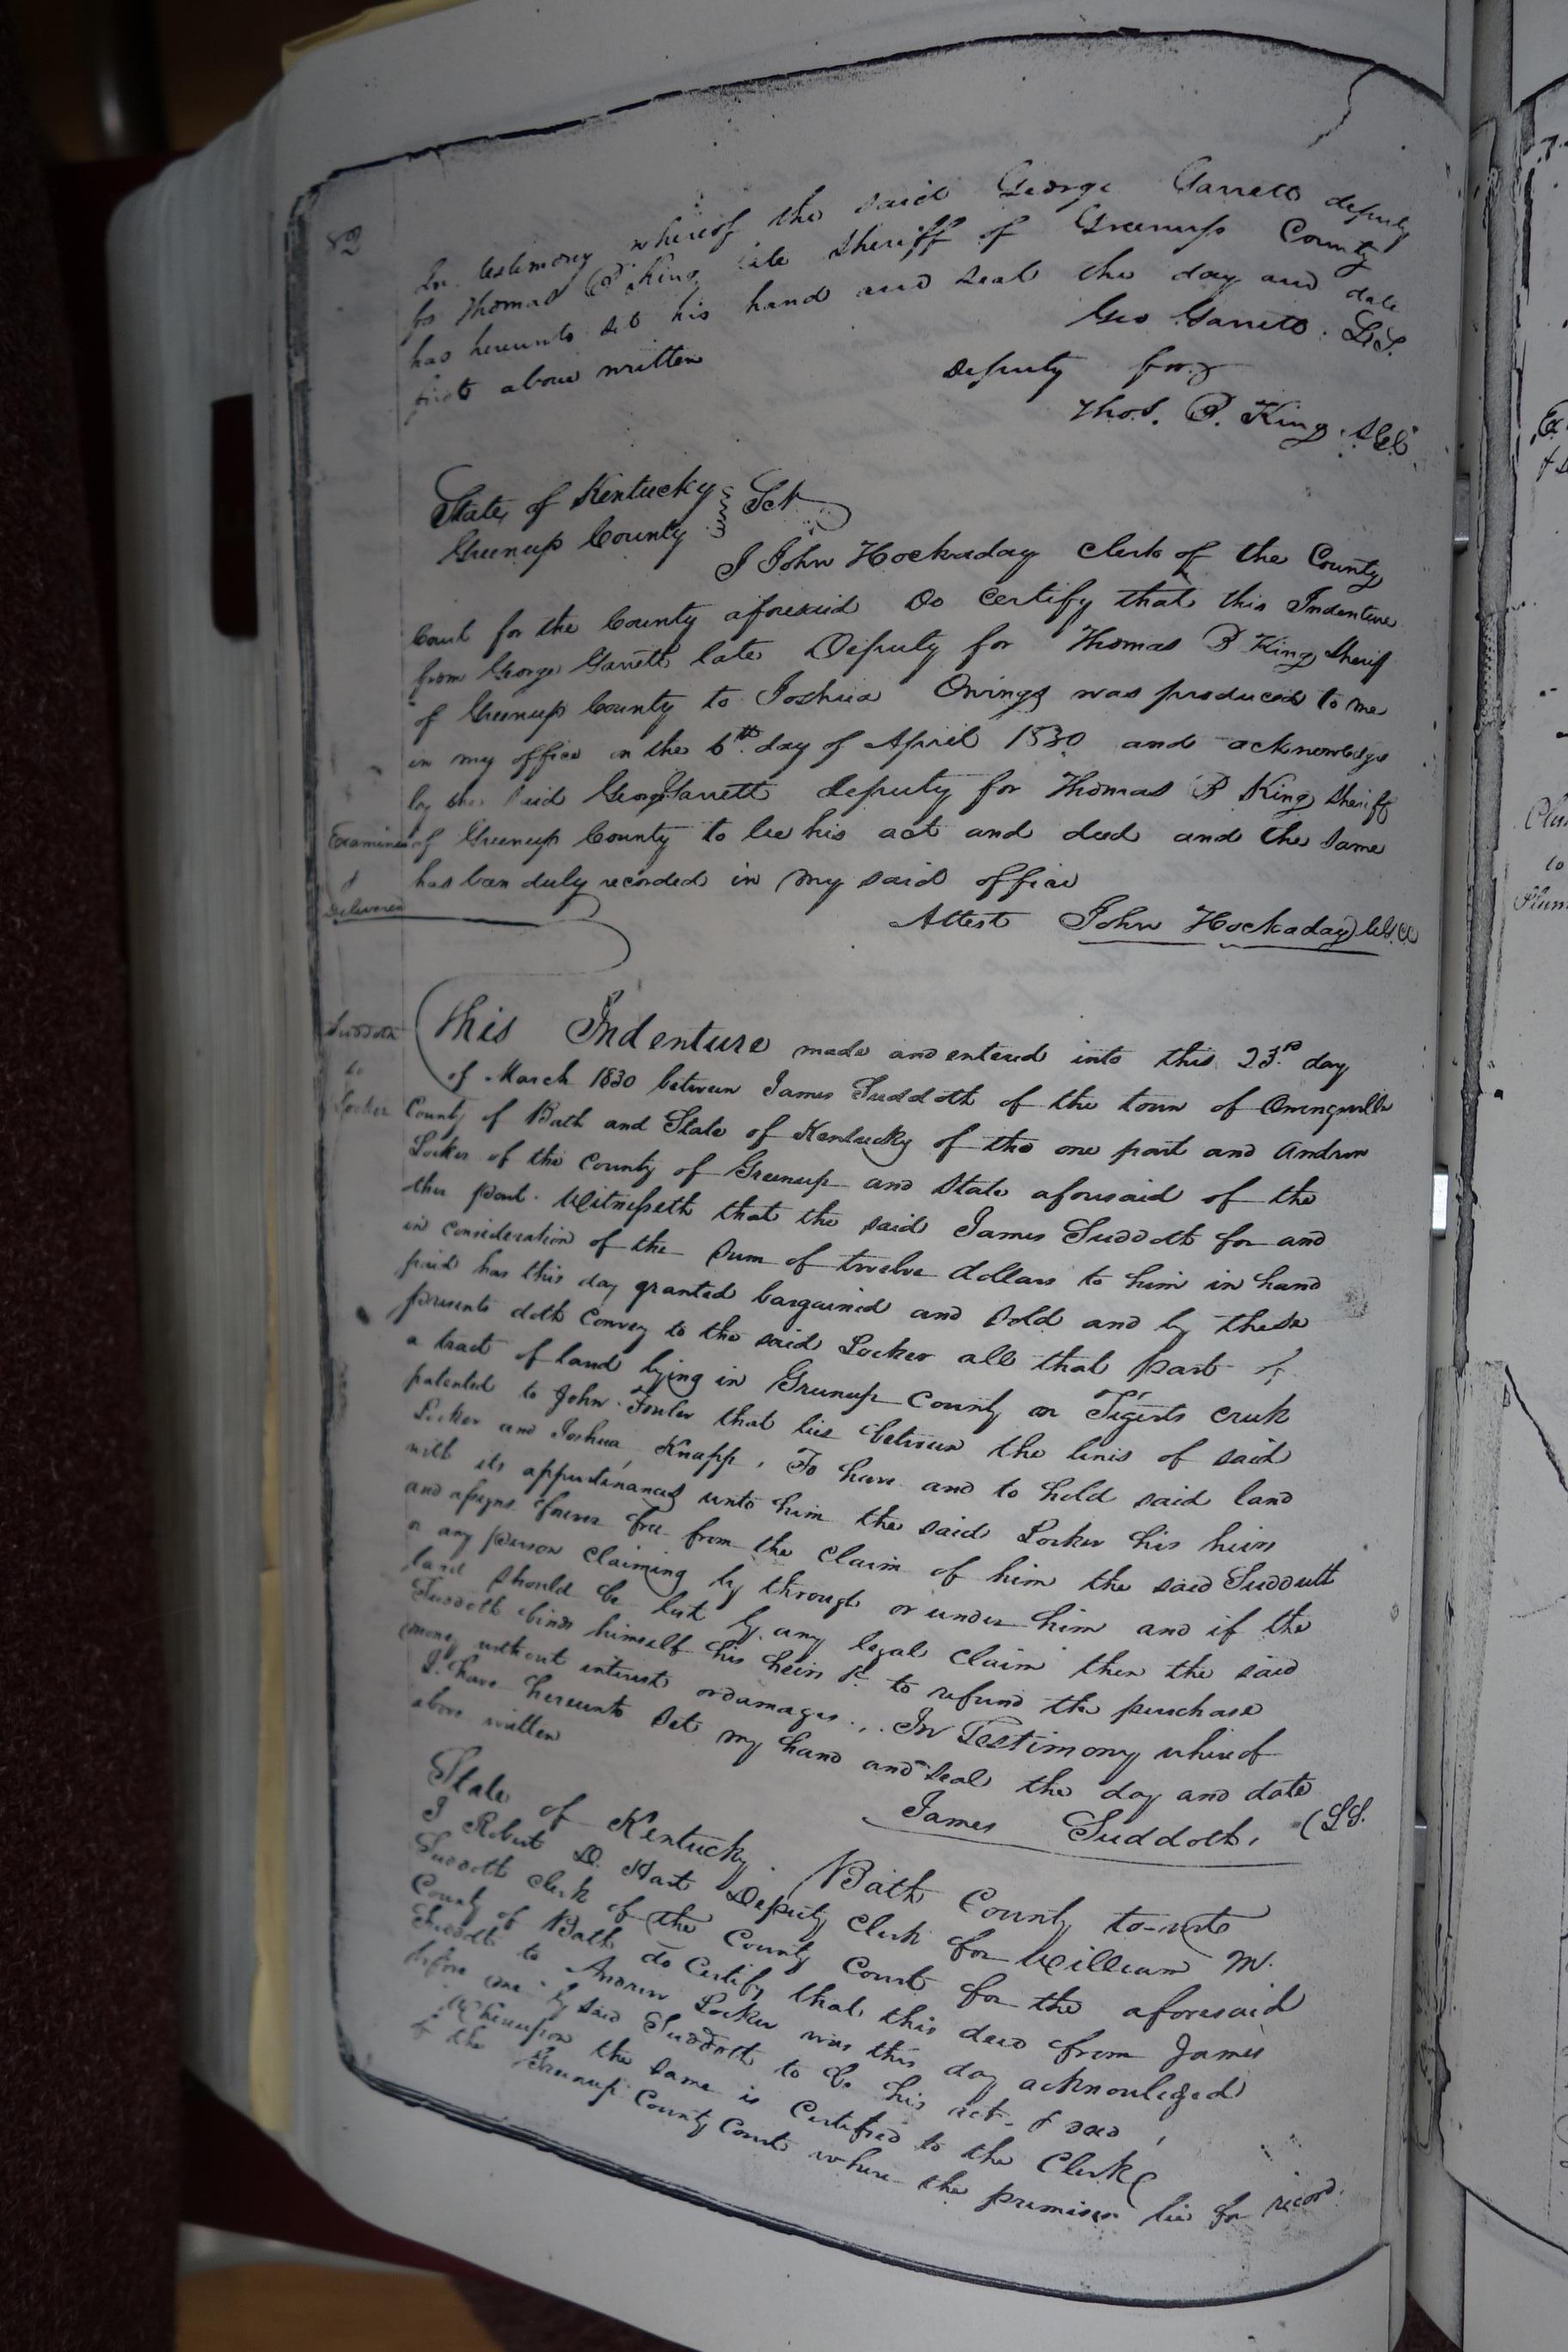 82
In testimony whereof the said George Garrett deputy
for Thomas B King late Sheriff of Greenup County
has hereunto set his hand and seal the day and date
first above written
Geo Garrett. L.S.
deputy for
Thos. B. King. S.G.C.
State of Kentucky
Greenup County Sct
I John Hockaday Clerk of the County
Court for the County aforesaid Do certify that this Indenture
from George Garrett late Deputy for Thomas B King Sheriff
of Greenup County to Joshua Owings was produced to me
in my office on the 6th day of April 1830 and acknowledge
by the said George Garrett deputy for Thomas B King Sheriff
Examined of Greenup County to be his act and deed and the same
& has been duly recorded in my said office
Delivered
Attest John Hockaday
Suddoth
to
Locker
This Indenture made and entered into this 23rd day
of March 1830 between James Suddoth of the town of Owingsville
County of Bath and State of Kentucky of the one part and Andrew
Locker of the County of Greenup and State aforesaid of the
other part. Witnesseth that the said James Suddoth for and
in consideration of the sum of twelve dollars to him in hand
paid has this day granted bargained and sold and by these
presents doth Convey to the said Locker all that part of
a tract of land lying in Greenup County on Tigerts creek
patented to John Fowler that lies between the lines of said
Locker and Joshua Knapp, To have and to hold said land
with its appurtenances unto him the said Locker his heirs
and assigns forever free from the claim of him the said Suddoth
or any person claiming by through or under him and if the
land should be lost by any legal claim then the said
Suddoth binds himself his heirs &c to refund the purchase
money without interest or damages... In Testimony whereof
I have hereunto set my hand and seal the day and date
above written
James Suddoth. (LS.
State of Kentucky Bath County to-wit
I Robert D. Hart Deputy Clerk for William M.
Suddoth Clerk of the County Court for the aforesaid
County of Bath do Certify that this deed from James
Suddoth to Andrew Locker was this day acknowleged
before me by said Suddoth to be his act & deed,
Whereupon the same is Certified to the Clerk
of the Greenup County Court where the premises lie for record.